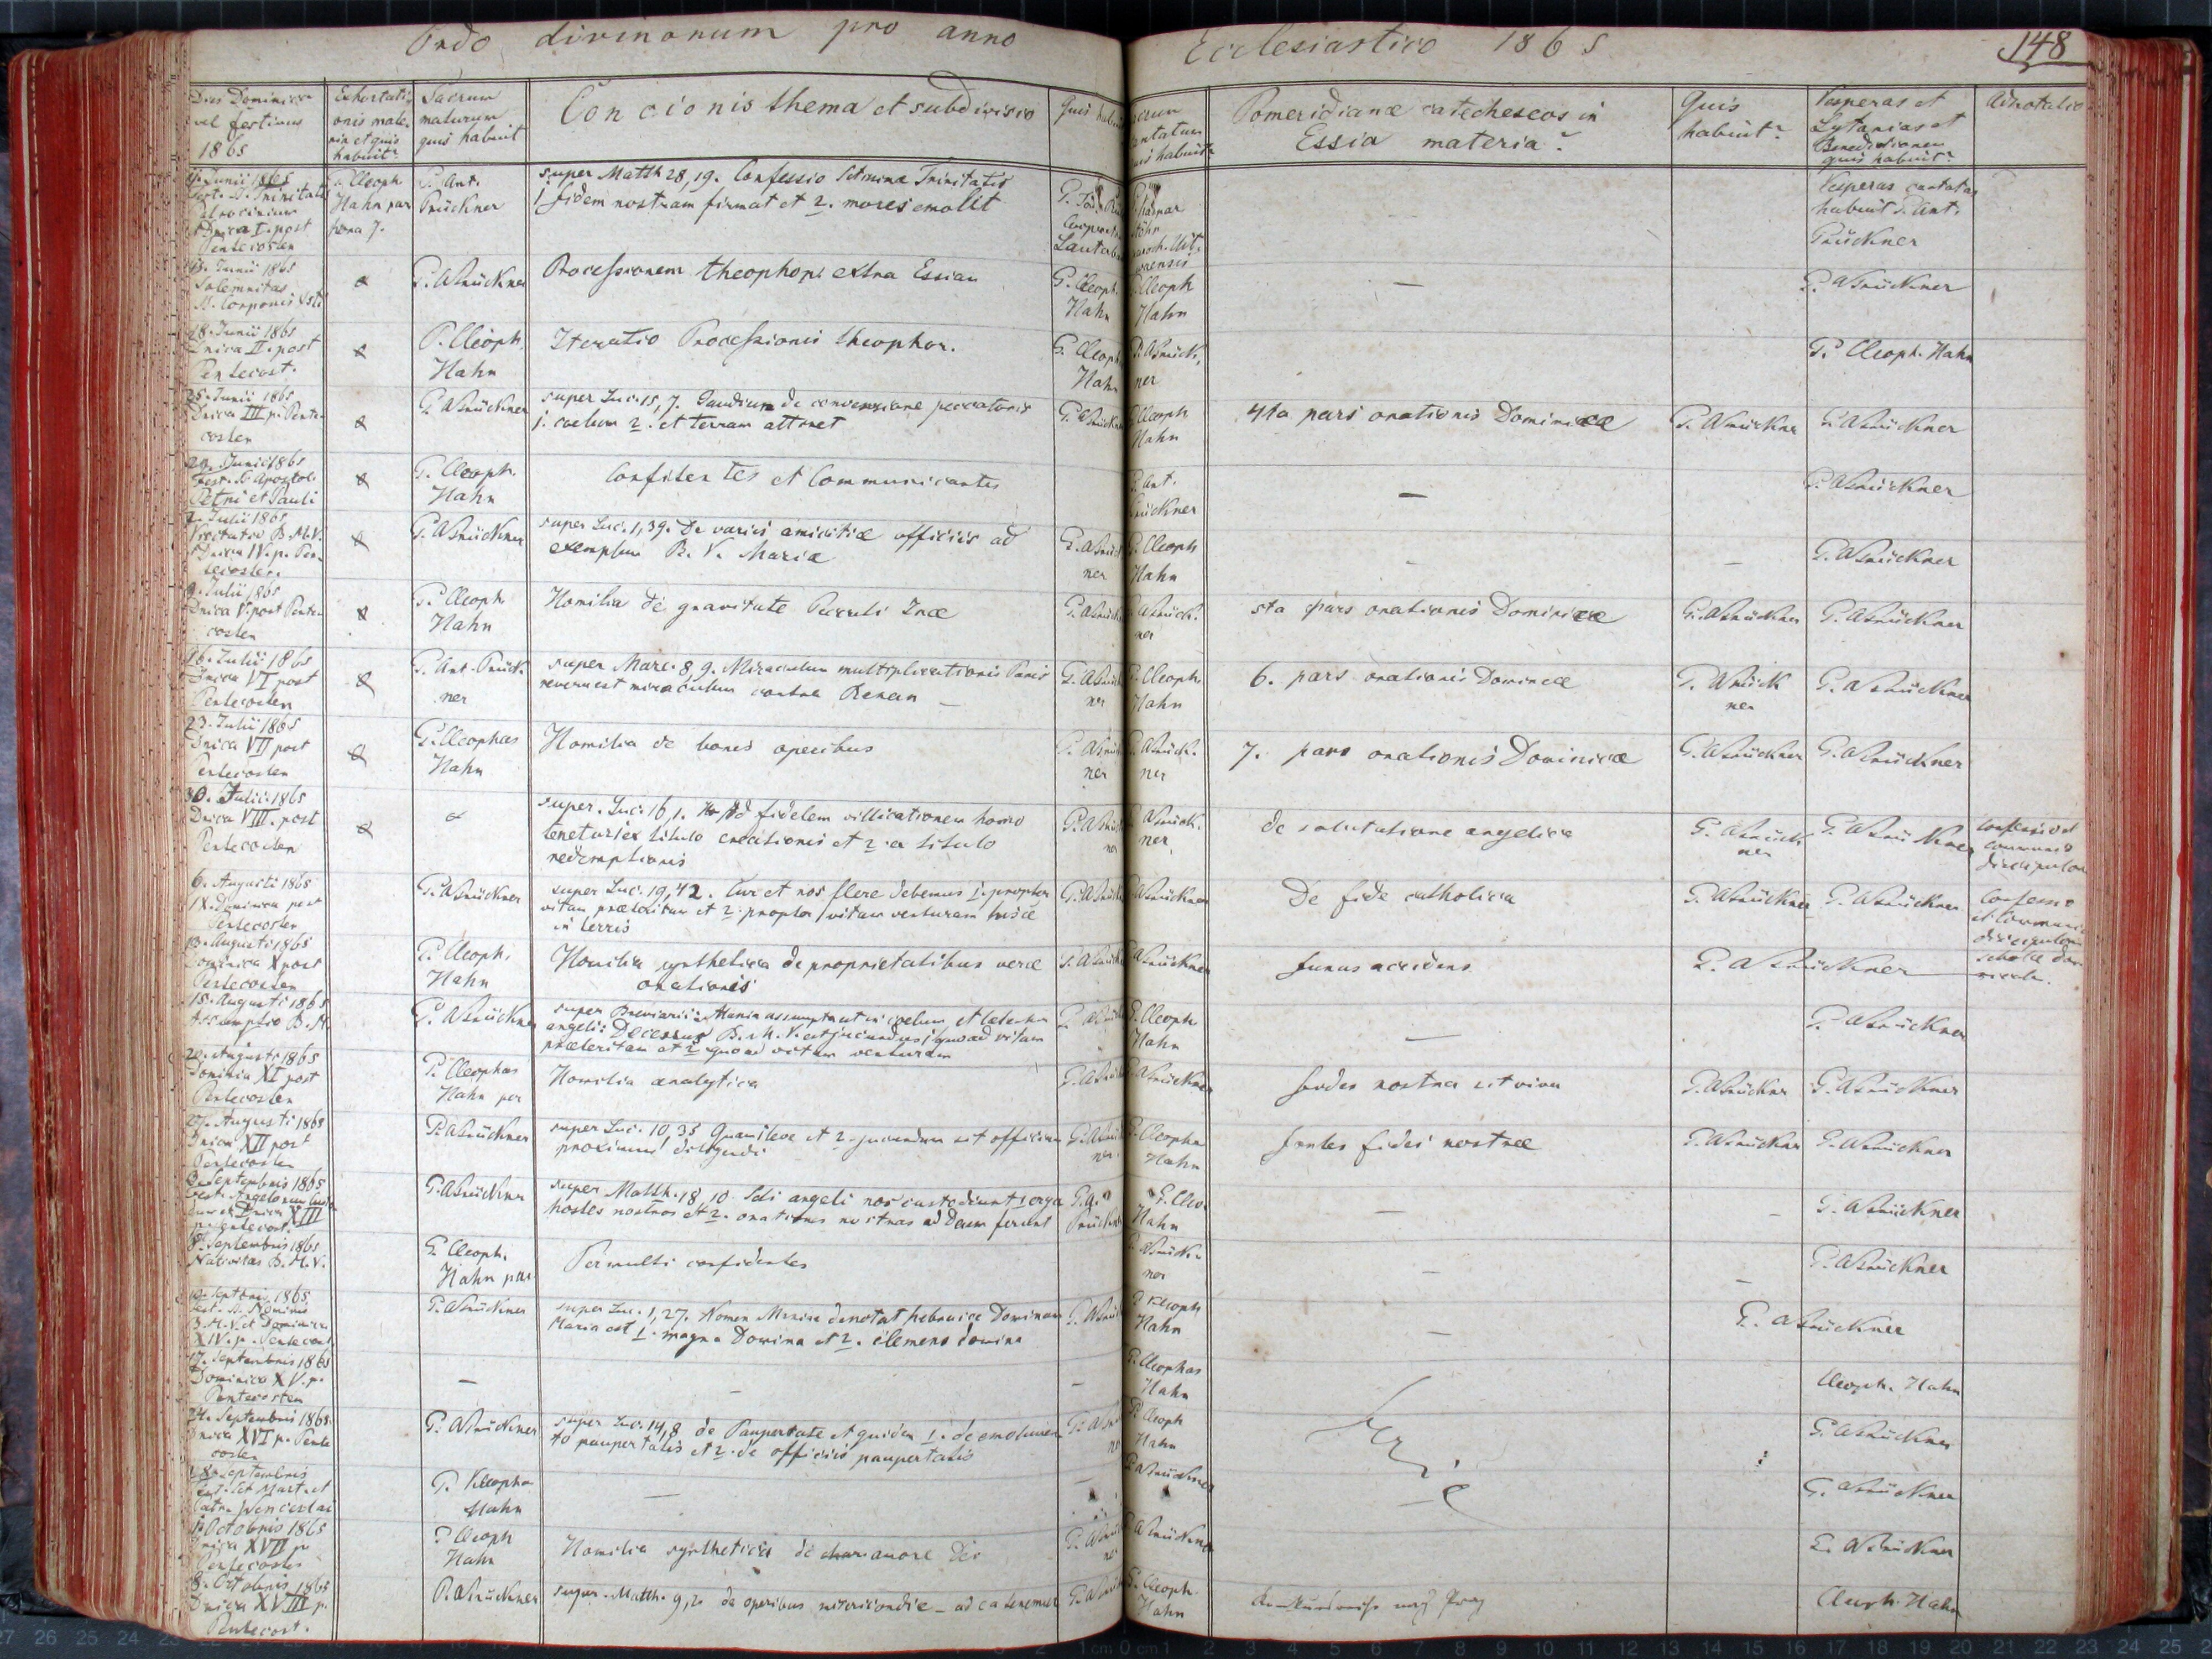 Ordo divinorum pro anno Ecclesiastico 1865
148
Dies Dominica
vel festivus
1865
Exhortati-
onis mate-
ria et quis
habuit?
Sacrum
maturum
quis habuit
Concionis thema et subdivisio
Quis habuit
cantatum
quis habuit?
Pomeridianæ catecheseos in
Essia materia?
Quis
habuit?
Vesperas et
Lytanias et
Benedictionem
quis habuit?
Adnotatio
Junii 1865
Fest. S. Trinitatis
Patrocinium
Dnica I. post
Pentecosten
P. Cleoph
Hahn par
hora 7.
P. Ant.
Prückner
super Matth 28, 19. Confessio SStmina Trinitatis
1 fidem nostram firmat et 2. mores emolit
Vesperas cantatas
habuit P. Ant.
Prückner
Junii 1865
Solemnitas
St. Corporis Xsti
P. A Prückner
Processionem theophor. extra Essiam
P. Cleoph.
Hahn
P. Cleoph
Hahn
—
P. A Prückner
18. Junii 1865
Dnica II. post
Pentecost.
P. Cleoph.
Hahn
Iteratio Processionis theophor.
P. Cleoph
Hahn
P. A Prück-
ner
P. Cleoph. Hahn
25. Junii 1865
Dnica III p. Pente-
costen
P. A Prückner
super Luc. 15, 7. Gaudium de conversione peccatoris
1. coelum 2. et terram attinet
P. A Prückner
P. Cleoph
Hahn
4ta pars orationis Dominicæ
P. A Prückner
P. A Prückner
29. Junii 1865
Fest. S. Apostol.
Petri et Pauli
P. Cleoph.
Hahn
Confitentes et Communicantes
P. Ant.
Prückner
—
P. A Prückner
2. Julii 1865
Visitatio B.M.V.
Dnica IV. p. Pen-
tecosten.
P. A Prückner
super Luc. 1, 39. De variis amicitiæ officiis ad
exemplum B. V. Mariæ
P. A Prück
ner
P. Cleoph
Hahn
—
—
P. A Prückner
9. Julii 1865
Dnica V. post Pente-
costen
P. Cleoph
Hahn
Homilia de gravitate Peccati Iræ
P. A Prück
P. A Prück.
ner
5ta pars orationis Dominicæ
P. A Prückner
P. A Prückner
16. Julii 1865
Dnica VI post
Pentecosten
P. Ant. Prück-
ner
super Marc. 8, 9. Miraculum multiplicationis Panis
revera est miraculum contra Renan —
P. A Prück
ner
P. Cleoph
Hahn
6. pars orationis Dominicæ
P. A Prück
ner
P. A Prückner
23. Julii 1865
Dnica VII post
Pentecosten
P. Cleophas
Hahn
Homilia de bonis operibus
P. A Prück
ner
P. A Prück.
ner
7. pars orationis Dominicæ
P. A Prückner
P. A Prückner
30. Julii 1865
Dnica VIII. post
Pentecosten
super. Luc. 16, 1. Ad fidelem villicationem homo
tenetur 1 ex titulo creationis et 2. a titulo
redemptionis
P. A Prück
ner
P. A Prück.
ner
de salutatione angelica
P. A Prück
ner
P. A Prückner
6. Augusti 1865
IX. Dominica post
Pentecosten
P. A Prückner
super Luc. 19, 42. Cur et nos flere debemus 1. propter
vitam præteritam et 2. propter vitam venturam
in terris
P. A Prück
P. A Prückner
De fide catholica
P. A Prückner
P. A Prückner
Confessio
13. Augusti 1865
Dominica X post
Pentecosten
P. Cleoph.
Hahn
Homilia synthetica de proprietatibus veræ
orationis
P. A Prück
P. A Prückner
funus accidens
P. A Prückner
15. Augusti 1865
Assumptio B. M.
P. A Prückner
super Breviarii: Maria assumpta est in coelum et lætantur
angeli: Decessus B. M. V. est jucundus 1 quoad vitam
præteritam et 2 quoad vitam venturam
P. Cleoph
Hahn
—
P. A Prückner
20. Augusti 1865
Dominica XI post
Pentecosten
P. Cleophas
Hahn par
Homilia analytica
P. A Prück
P. A Prückner
fides nostra sit viva
P. A Prückner
P. A Prückner
27. Augusti 1865
Dnica XII post
Pentecosten
P. A Prückner
super Luc. 10, 35 Quam leve et 2. jucundum sit officium
proximum diligendi
P. A Prück
ner
P. Cleopha
Hahn
fontes fidei nostræ
P. A Prückner
P. A Prückner
3. Septembris 1865
Fest. Angelorum
Dnica XIII
p. Pentecost.
P. A Prückner
super Matth. 18, 10 Sti angeli nos custodiunt 1 erga
hostes nostros et 2. orationes nostras ad Deum ferunt
P. A.
Prückner
P. Cleo.
Hahn
—
—
P. A Prückner
8. Septembris 1865
Nativitas B. M. V.
P. Cleoph.
Hahn par
Permulti confitentes
P. A Prück-
ner
—
—
P. A Prückner
Septbris 1865
Fest. S. Nominis
B. M. V. et Dominica
XIV. p. Pentecost.
P. A Prückner
super Luc. 1, 27. Nomen Mariæ denotat hebraice Dominam
Maria est 1. magna Domina et 2. clemens domina
P. A Prück
P. Cleoph
Hahn
—
P. A Prückner
17. Septembris 1865
Dominica XV. p.
Pentecosten
—
—
—
P. Cleophas
Hahn
Cleoph. Hahn
24. Septembris 1865
Dnica XVI p. Pente
costen
P. A Prückner
super Luc. 14, 8 de Paupertate et quidem 1. de emolumen
to paupertatis et 2. de officiis paupertatis
P. A Prück
ner
P. Cleoph
Hahn
Feriæ
P. A Prückner
28. Septembris
Fest. Sct Mart. et
Patr. Wenceslai
P. Cleopha
Hahn
—
—
P. A Prückner
—
P. A Prückner
1. Octobris 1865
Dnica XVII p.
Pentecosten
P. Cleoph
Hahn
Homilia synthetica de amore Dei
P. A Prück
ner
P. A Prückner
P. A Prückner
8. Octobris 1865
Dnica XVIII p.
Pentecost.
P. A Prückner
super. Matth. 9, 2 de operibus misericordiæ – ad ea tenemur
P. A Prück
P. Cleoph.
Hahn
Cleoph. Hahn